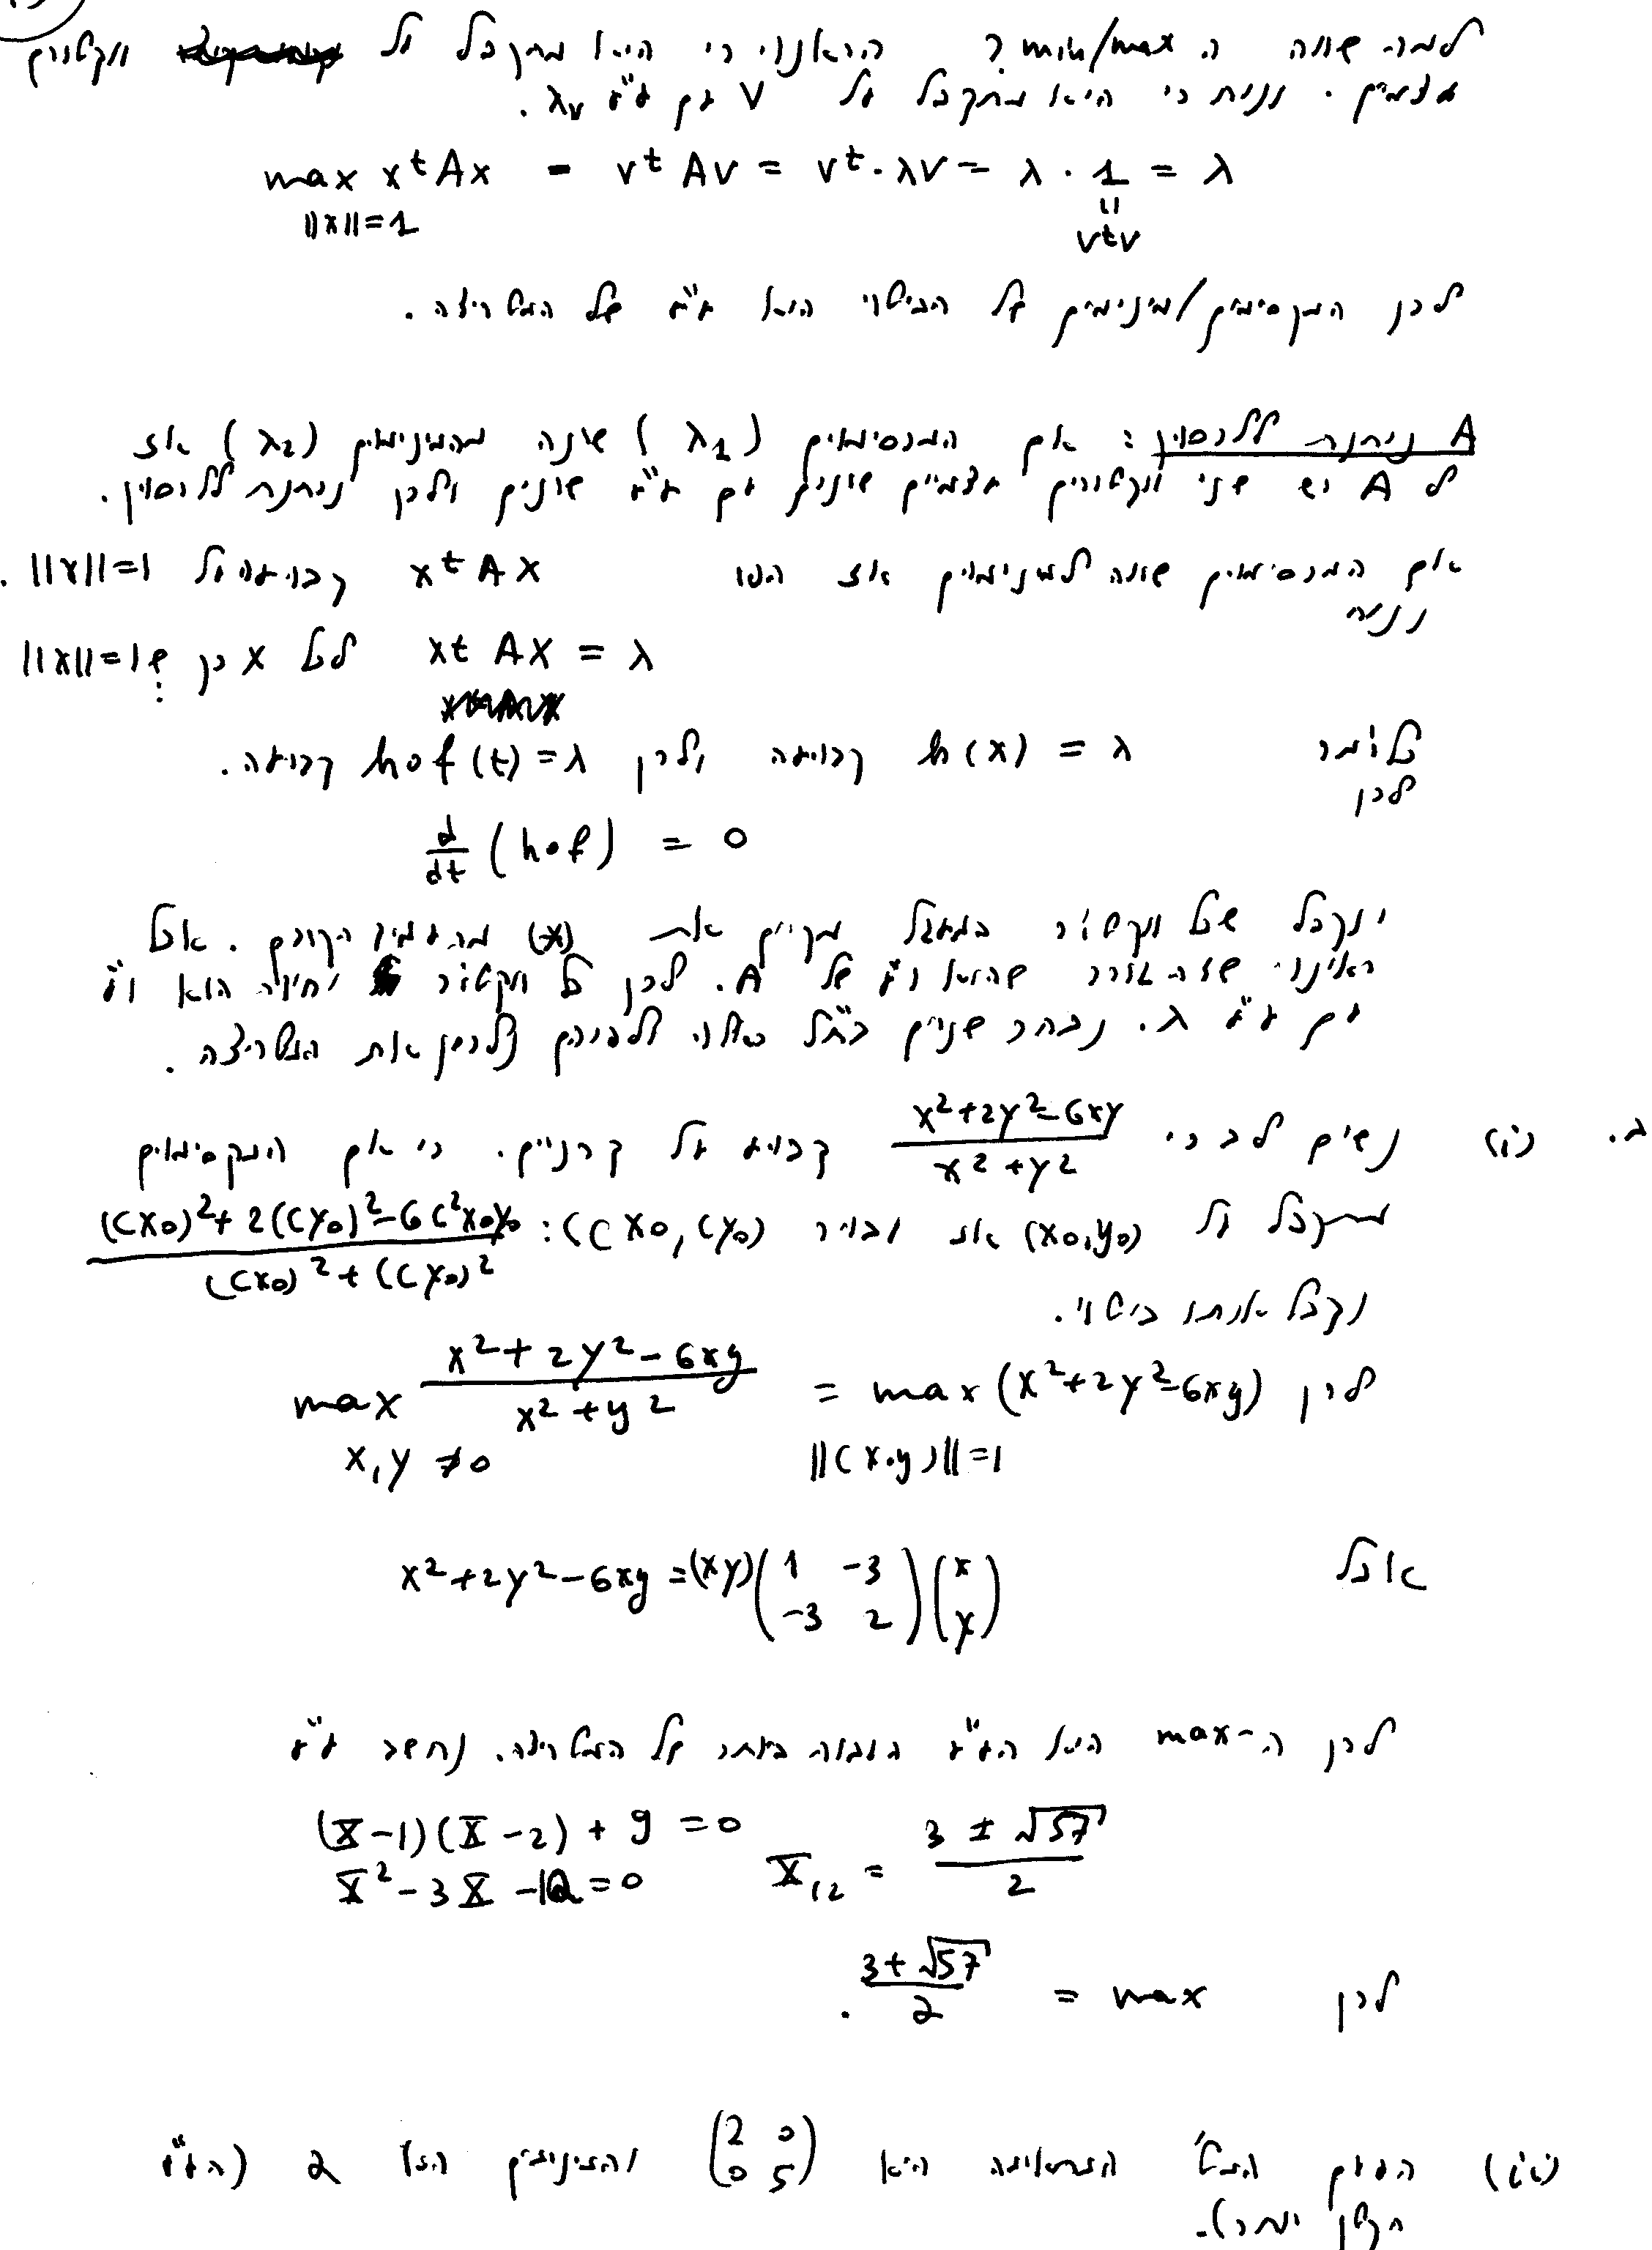 למה שווה ה min/max? הראנו כי הוא מתקבל על וקטורים
עצמיים. נניח כי הוא מתקבל על V עם ע"ע λv.
max x^t Ax = v^t Av = v^t · λv = λ · 1 = λ
||x||=1
v^t v
לכן המקסימום/מינימום של הביטוי הוא ע"ע של המטריצה.
A ניתנת ללכסון: אם המכסימום (λ1) שונה מהמינימום (λ2) אז
ל A יש שני וקטורים עצמיים שונים עם ע"ע שונים ולכן ניתנת ללכסון.
אם המכסימום שווה למינימום אז x^t A x קבועה על ||x||=1.
נניח
x^t Ax = λ לכל x כך ש ||x||=1:
כלומר h(x) = λ קבועה ולכן hof(t) = λ קבועה.
לכן
d/dt (hof) = 0
ונקבל שכל וקטור במעגל מקיים את (*) מהעמוד הקודם. אבל
ראינו שזה גורר שהוא ו"ע של A. לכן כל וקטור יחידה הוא ו"ע
עם ע"ע λ. נבחר שניים בת"ל כאלו ולפיהם נלכסן את המטריצה.
ב. (i) נשים לב כי (x²+2y²-6xy)/(x²+y²) קבוע על קרניים. כי אם המקסימום
מתקבל על (x0,y0) אז נגדיר (cx0,cy0): ((cx0)²+2(cy0)²-6c²x0y0)/((cx0)²+(cy0)²)
נקבל אותו ביטוי.
לכן max (x²+2y²-6xy)/(x²+y²) = max (x²+2y²-6xy)
x,y ≠0 ||(x,y)||=1
אבל x²+2y²-6xy = (x y)(1 -3 -3 2)(x y)
לכן ה-max הוא הע"ע הגבוה ביותר של המטריצה. נחשב ע"ע
(X-1)(X-2) + 9 = 0
X² - 3X - 10 = 0 X12 = (3 ± √57)/2
לכן max = (3+√57)/2.
(ii) הפעם המט' המתאימה היא (2 0 0 5) והמינימום הוא 2 (הע"ע
הקטן יותר).